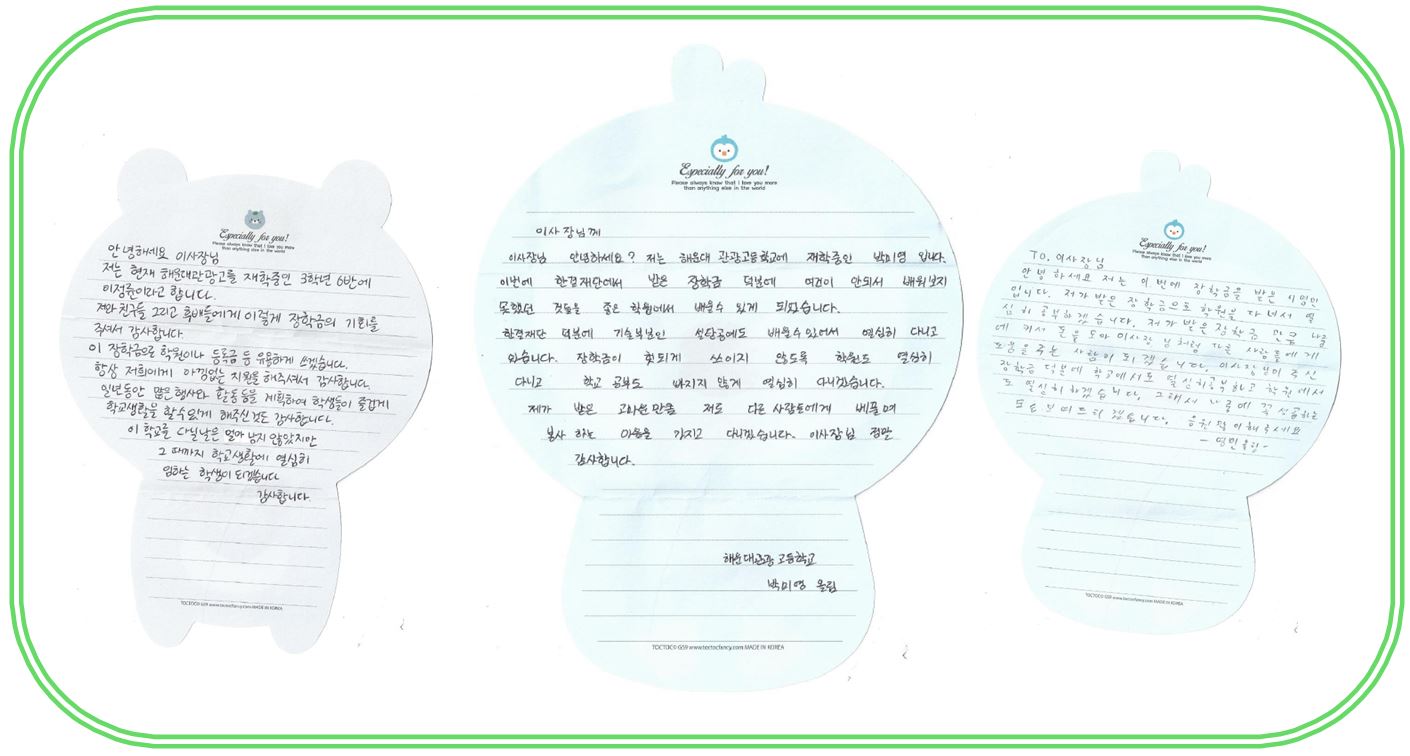 Especially for you!
Please always know that I love you more
than anything else in the world
안녕하세요 이사장님
저는 현재 해운대관광고를 재학중인 3학년 6반에
이정륜이라고 합니다.
저와 친구들 그리고 후배들에게 이렇게 장학금의 기회를
주셔서 감사합니다.
이 장학금으로 학원이나 등록금 등 유용하게 쓰겠습니다.
항상 저희에게 아낌없는 지원을 해주셔서 감사합니다.
일년동안 많은 행사와 활동 등을 계획하여 학생들이 즐겁게
학교생활을 할수있게 해주신것도 감사합니다.
이 학교를 다닐날은 얼마 남지 않았지만
그 때까지 학교생활에 열심히
임하는 학생이 되겠습니다
감사합니다.
TOCTOC© G59 www.toctocfancy.com MADE IN KOREA
Especially for you!
Please always know that I love you more
than anything else in the world
이사장님께
이사장님 안녕하세요? 저는 해운대 관광고등학교에 재학중인 박미영 입니다.
이번에 한결재단에서 받은 장학금 덕분에 여건이 안되서 배워보지
못했던 것들을 좋은 학원에서 배울수 있게 되었습니다.
한결재단 덕분에 기술부분인 설탕공예도 배울수 있어서 열심히 다니고
있습니다. 장학금이 헛되게 쓰이지 않도록 학원도 열심히
다니고 학교 공부도 빠지지 않게 열심히 다니겠습니다.
제가 받은 고마움만큼 저도 다른 사람들에게 베풀며
봉사 하는 마음을 가지고 다니겠습니다. 이사장님 정말
감사합니다.
해운대관광 고등학교
박미영 올림
TOCTOC© G59 www.toctocfancy.com MADE IN KOREA
Especially for you!
Please always know that I love you more
than anything else in the world
TO. 이사장님
안녕하세요 저는 이번에 장학금을 받은
입니다. 저가 받은 장학금으로 학원을 다녀서 열
심히 공부하겠습니다. 저가 받은 장학금 만큼 나중
에 커서 돈을 모아 이사장님처럼 다른 사람들에게
도움을 주는 사람이 되겠습니다. 이사장님이 주신
장학금 덕분에 학교에서도 열심히공부하고 학원에서
도 열심히 하겠습니다. 그래서 나중에 꼭 성공하는
모습 보여드리겠습니다. 응원 많이해주세요
TOCTOC© G59 www.toctocfancy.com MADE IN KOREA